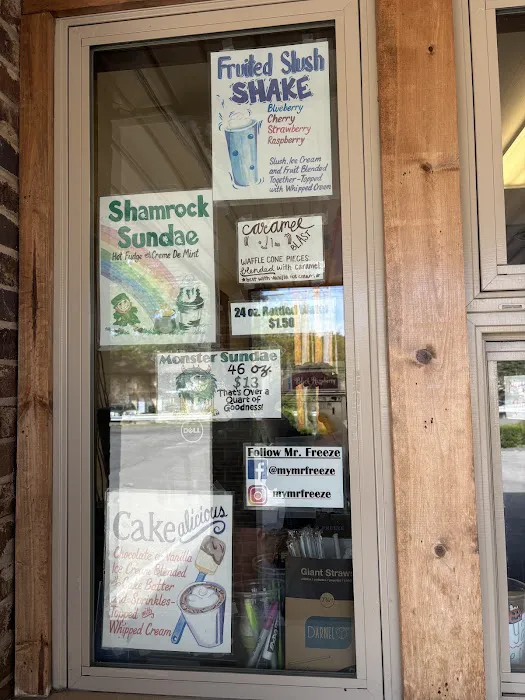 Fruited Slush
SHAKE
Blueberry
Cherry
Strawberry
Raspberry
Slush, Ice Cream
and Fruit Blended
Together-Topped
with Whipped Cream
Shamrock
Sundae
Hot Fudge Creme De Mint
Caramel
BLAST
WAFFLE CONE PIECES
blended with caramel
24 oz. Bottled Water
$1.50
Monster Sundae
46 oz.
$13
That's Over a
Quart of
Goodness!
Black Raspberry
DELL
Follow Mr. Freeze
f @mymrfreeze
mymrfreeze
Cakealicious
Chocolate or Vanilla
Ice Cream Blended
Cake Batter
and Sprinkles-
Topped
Whipped Cream
Giant Straw
DARNEL